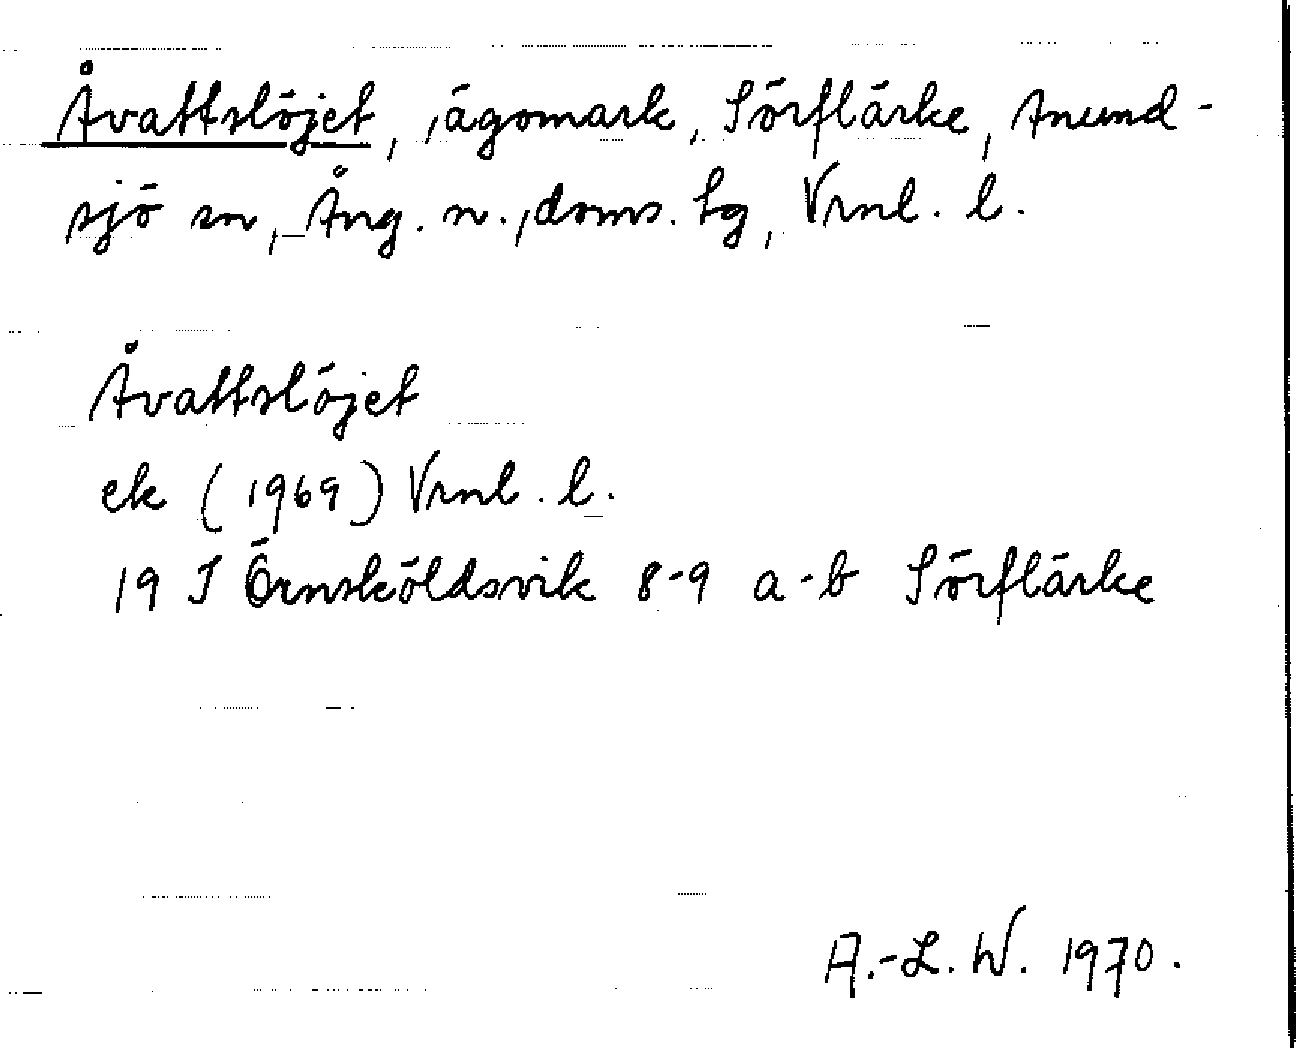 Åvattslöjet, ägomark, Sörflärke, Anund-
sjö sn, Ång. n., doms. hg, Vrnl. l.
Åvattslöjet
ek (1969) Vrnl. l.
19 J Örnsköldsvik 8-9 a-b Sörflärke
A.-L. W. 1970.